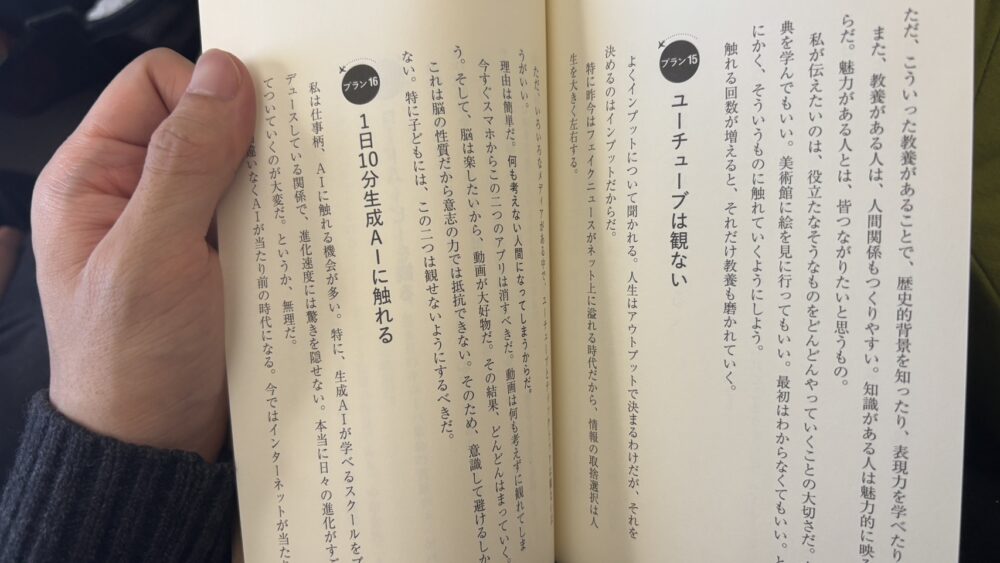 ただ、こういった教養があることで、歴史的背景を知ったり、表現力を学べたり
また、教養がある人は、人間関係もつくりやすい。知識がある人は魅力的に映
らだ。魅力がある人とは、皆つながりたいと思うもの。
私が伝えたいのは、役立たなそうなものをどんどんやっていくことの大切さだ。
典を学んでもいい。美術館に絵を見に行ってもいい。最初はわからなくてもいい。と
にかく、そういうものに触れていくようにしよう。
触れる回数が増えると、それだけ教養も磨かれていく。
プラン15
ユーチューブは観ない
よくインプットについて聞かれる。人生はアウトプットで決まるわけだが、それを
決めるのはインプットだからだ。
特に昨今はフェイクニュースがネット上に溢れる時代だから、情報の取捨選択は人
生を大きく左右する。
ただ、いろいろなメディアがある中で、
うがいい。
理由は簡単だ。何も考えない人間になってしまうからだ。
今すぐスマホからこの二つのアプリは消すべきだ。動画は何も考えずに観れてしま
う。そして、脳は楽したいから、動画が大好物だ。その結果、どんどんはまっていく。
これは脳の性質だから意志の力では抵抗できない。そのため、意識して避けるしか
ない。特に子どもには、この二つは観せないようにするべきだ。
プラン16
1日10分生成AIに触れる
私は仕事柄、AIに触れる機会が多い。特に、生成AIが学べるスクールをプ
デュースしている関係で、進化速度には驚きを隠せない。本当に日々の進化がす
てついていくのが大変だ。というか、無理だ。
違いなくAIが当たり前の時代になる。今ではインターネットが当た